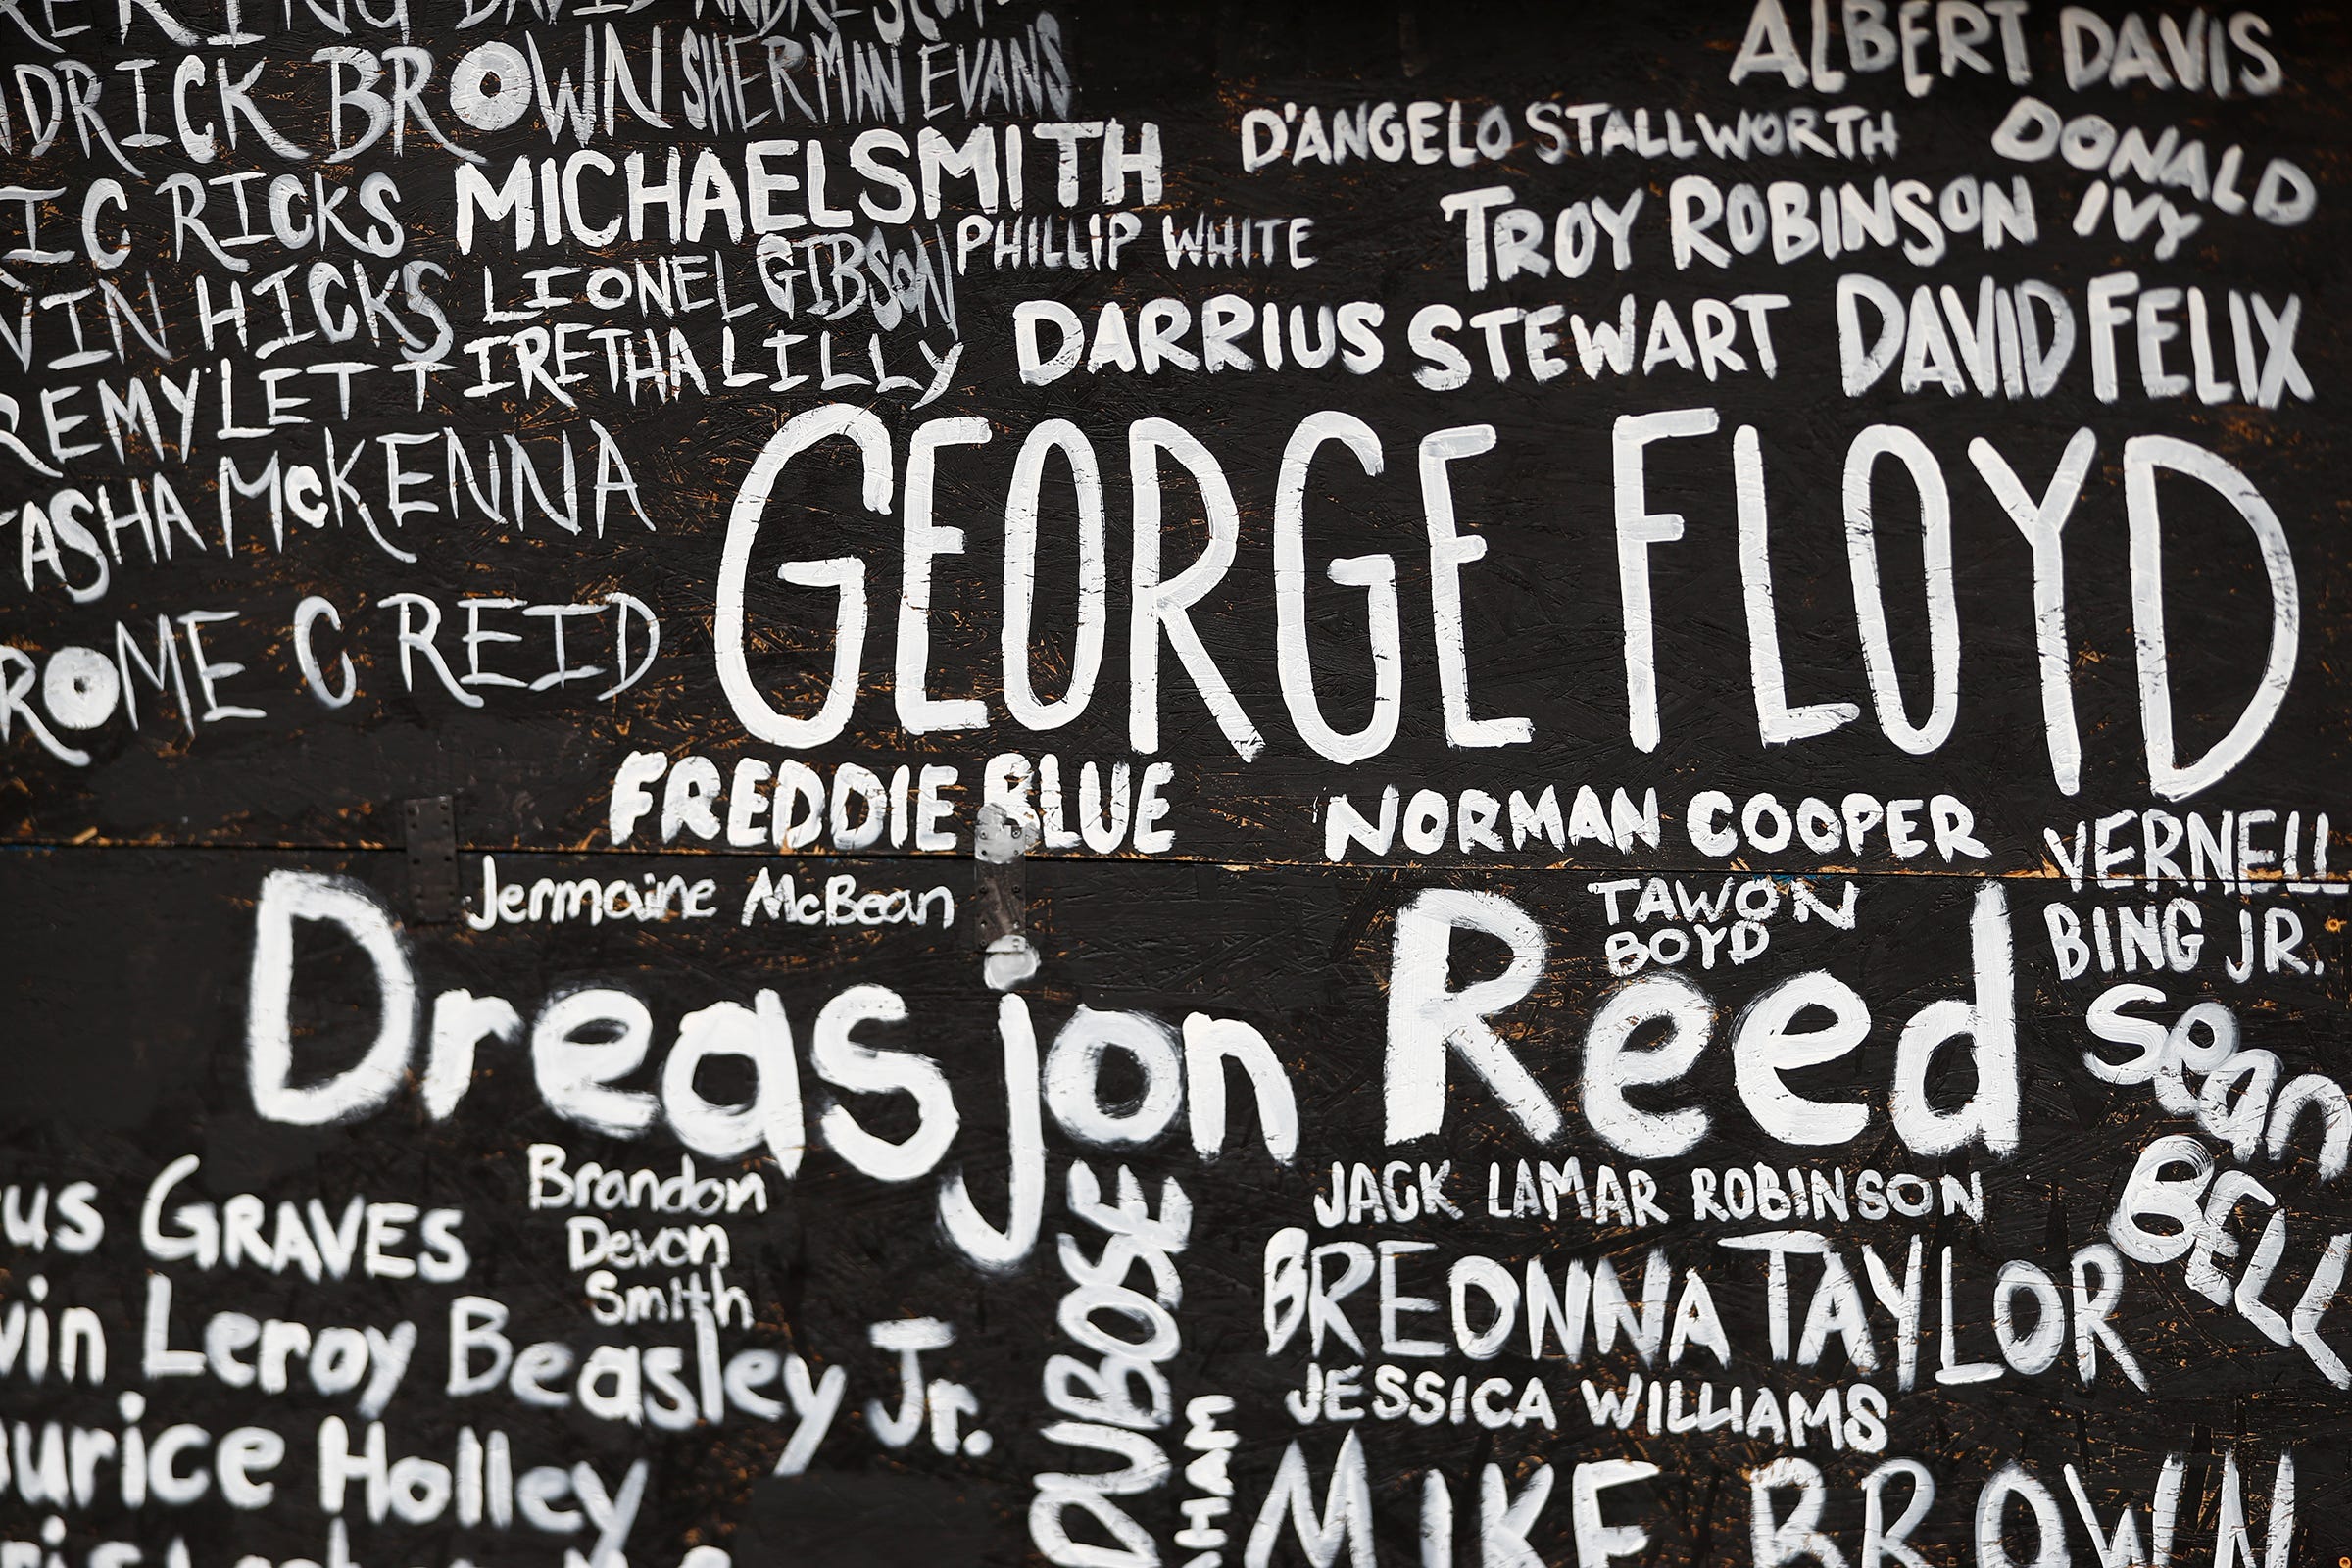 DAVID
DRICK BROWN SHERMAN EVANS
ALBERT DAVIS
IC RICKS MICHAEL SMITH
D'ANGELO STALLWORTH
DONALD
IVY
PHILLIP WHITE
TROY ROBINSON
VIN HICKS LIONEL GIBSON
DARRIUS STEWART DAVID FELIX
REMY LETT TIRETHA LILLY
TASHA McKENNA
GEORGE FLOYD
ROME C REID
FREDDIE BLUE
NORMAN COOPER
VERNELL
BING JR.
Jermaine McBean
TAWON
BOYD
Dreasjon Reed
Sean
BELL
us GRAVES
Brandon
Devon
Smith
JACK LAMAR ROBINSON
BREONNA TAYLOR
vin Leroy Beasley Jr.
DUBOSE
HAM
JESSICA WILLIAMS
urice Holley
MIKE BROWN